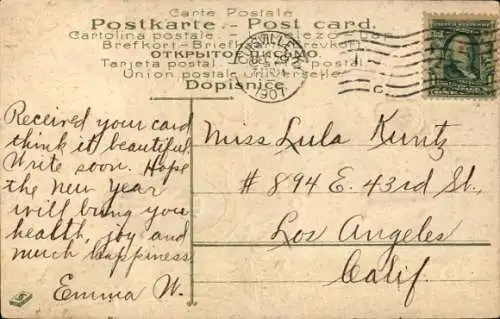 Carte Postale
Postkarte - Post card.
Cartolina postale
Brefkort - Briefkaart
ОТКРЫТОЕ ПИСЬМО
Tarjeta postal
Union postale universelle
Dopisnice
1907
Received your card
think it beautiful
Write soon. Hope
the new year
will bring you
health, joy and
much happiness
Emma W.
Miss Lula Kuntz
# 894 E. 43rd St.,
Los Angeles
Calif.